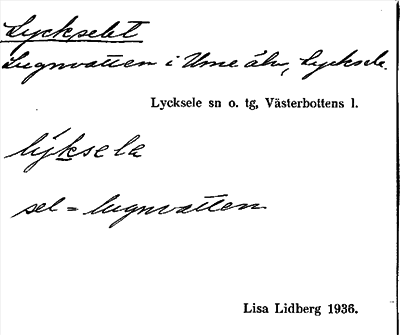 Lyckselet
Lugnvatten i Ume älv, Lycksele.
Lycksele sn o. tg, Västerbottens l.
lýksela
sel = lugnvatten
Lisa Lidberg 1936.